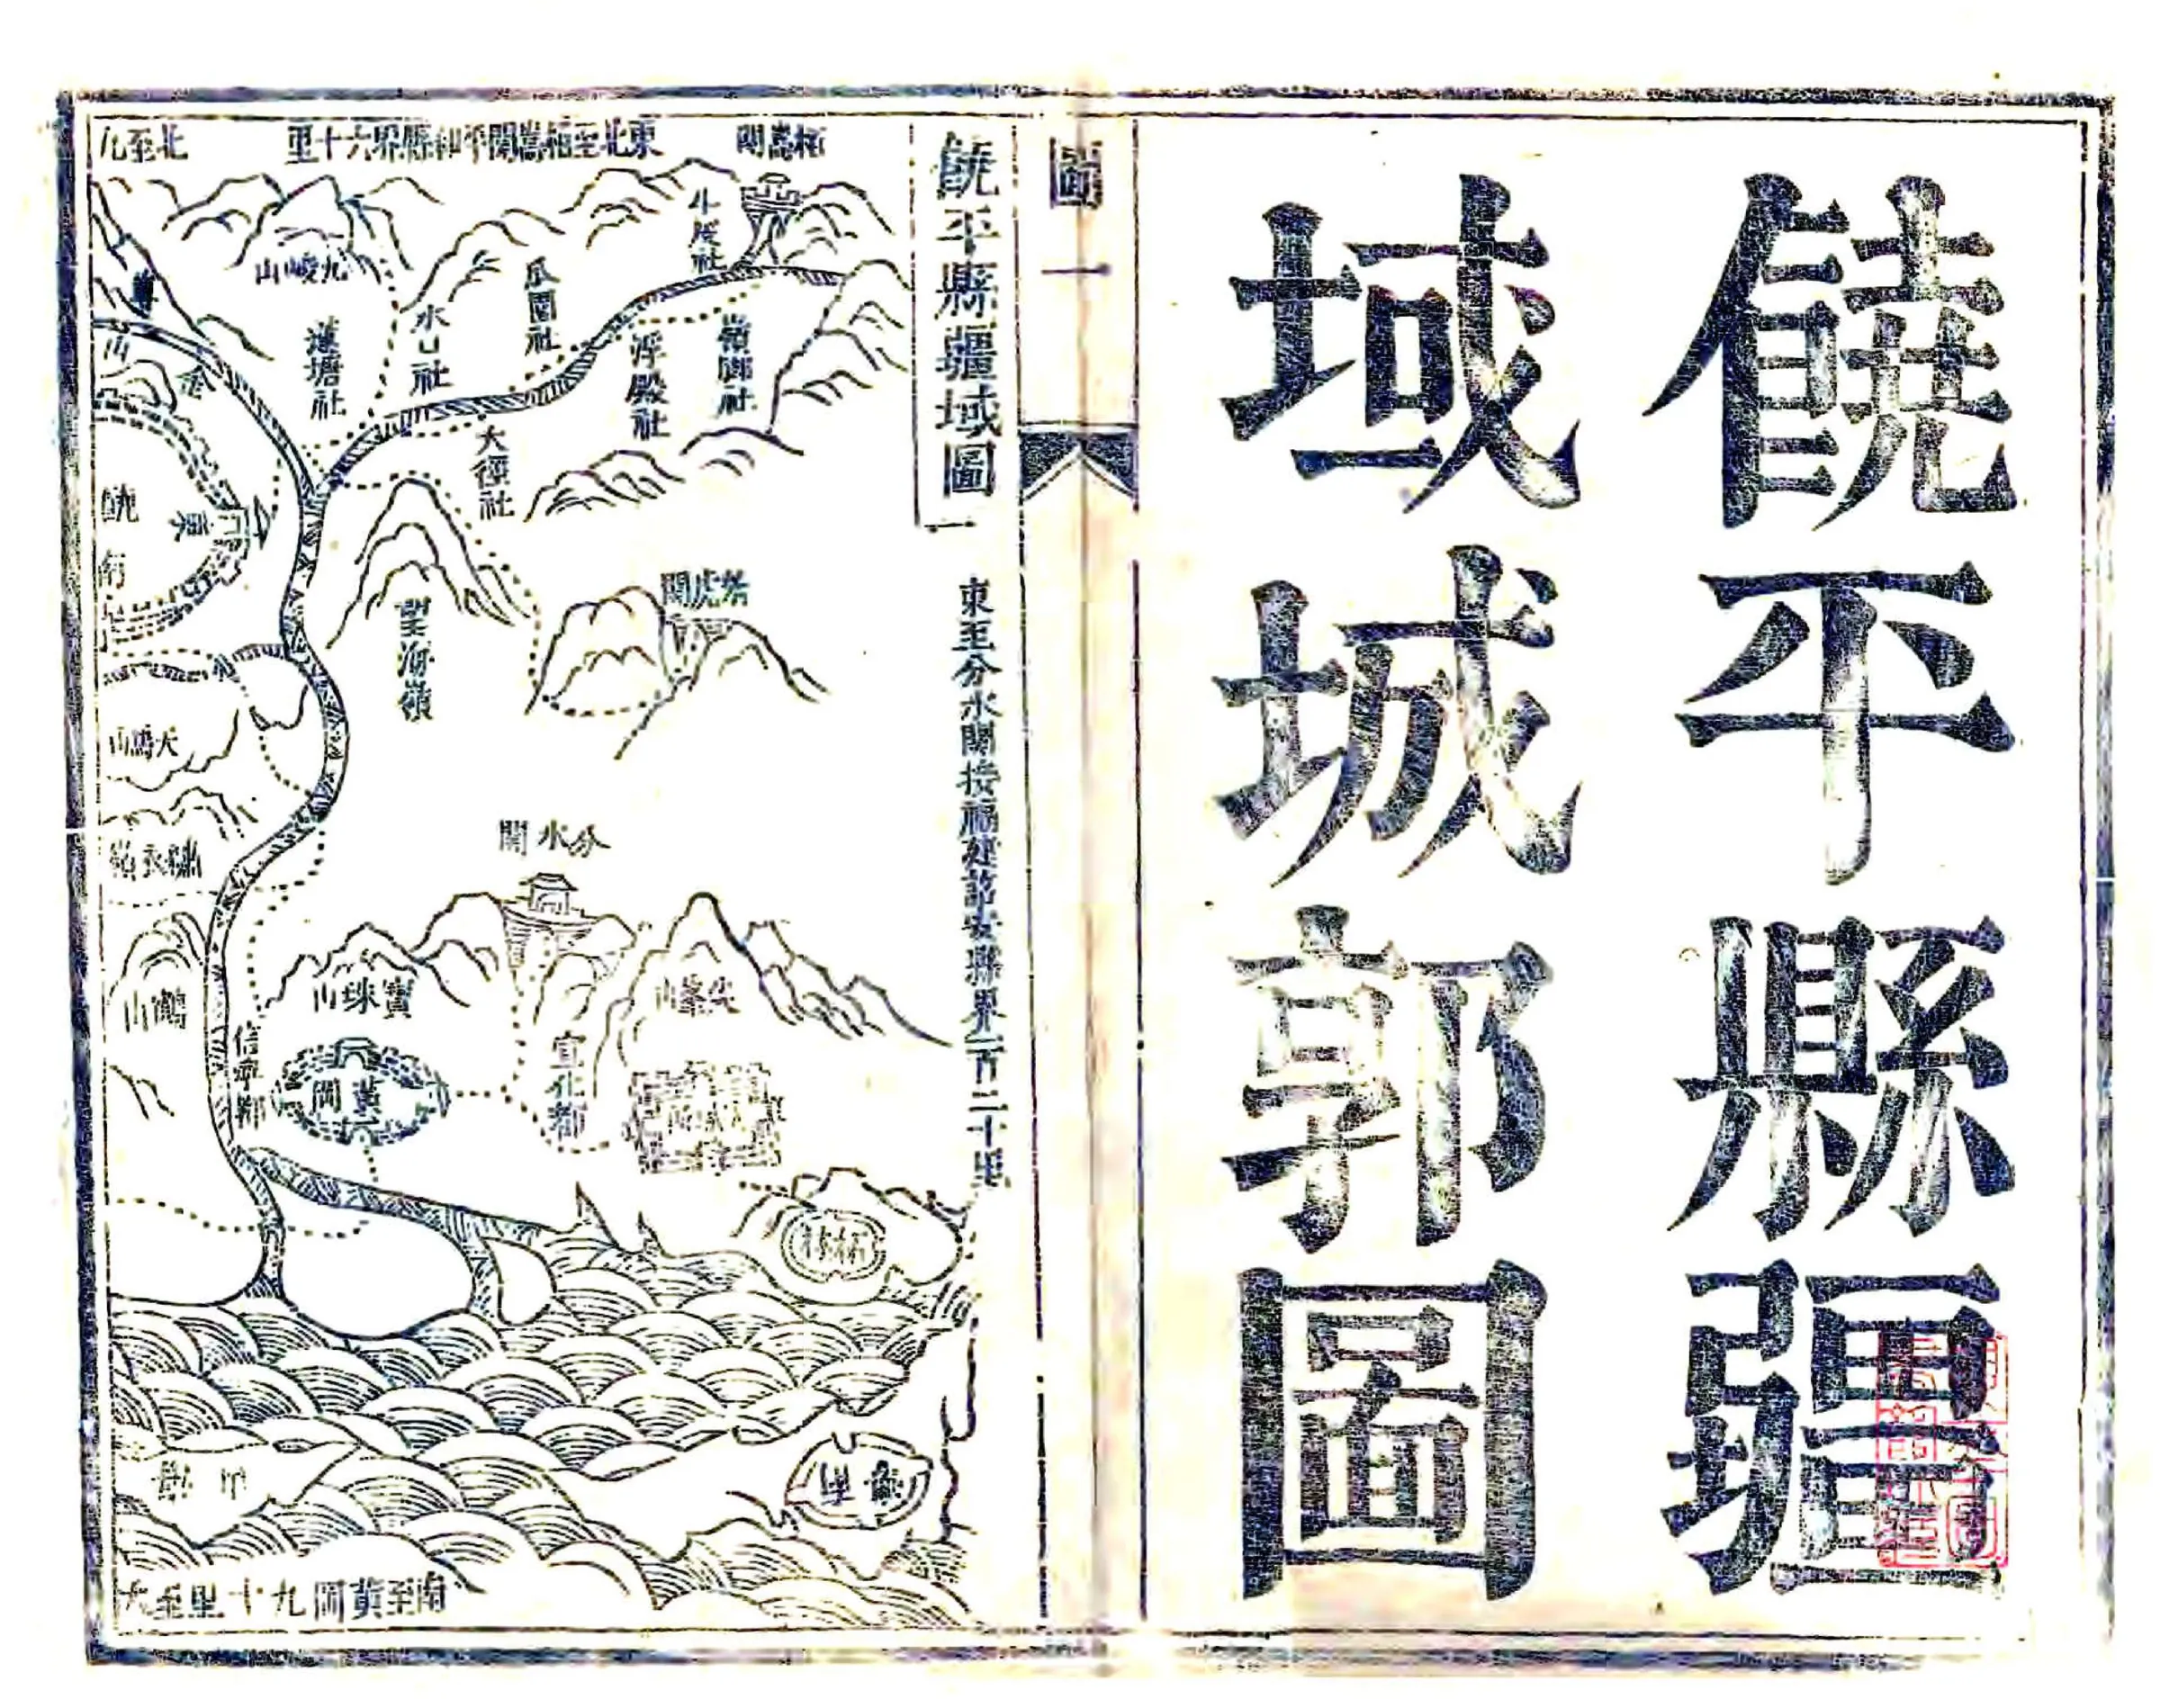 饒平縣疆
域城郭圖
圖一
饒平縣疆域圖
東至分水關接福建詔安縣界一百二十里
柏嵩關
東北至柏嵩關平和縣界六十里
北至九
九峻山
瓜園社
水口社
蓮塘社
嶺腳社
浮殿社
大徑社
望海嶺
東
饒
天馬山
分水關
寶珠山
尖峯山
鶴山
信寧都
宣化都
黃岡
柘林
南至黃岡九十里至大